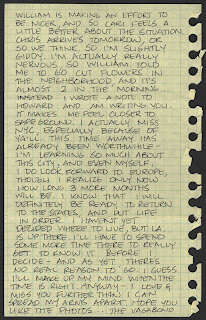 WILLIAM IS MAKING AN EFFORT TO
BE NICER AND SO CARI FEELS A
LITTLE BETTER ABOUT THE SITUATION.
CHRIS ARRIVES TOMORROW, OR
SO WE THINK, SO I'M SLIGHTLY
GIDDY. I'M ACTUALLY REALLY
NERVOUS SO WILLIAM TOLD
ME TO GO CUT FLOWERS IN
THE NEIGHBORHOOD AND IT'S
ALMOST 2 IN THE MORNING.
INSTEAD I WROTE A NOTE TO
HOWARD AND AM WRITING YOU.
IT MAKES ME FEEL CLOSER TO
SAFE GROUND. I ACTUALLY MISS
NYC, ESPECIALLY BECAUSE OF
YA'LL. THIS TIME AWAY HAS
ALREADY BEEN WORTHWHILE.
I'M LEARNING SO MUCH ABOUT
THIS CITY, AND EVEN MYSELF.
I DO LOOK FORWARD TO EUROPE,
THOUGH I REALIZE ONLY NOW
HOW LONG 3 MORE MONTHS
WILL BE. I KNOW THAT I WILL
DEFINITELY BE READY TO RETURN
TO THE STATES, AND PUT LIFE
IN ORDER. I HAVEN'T YET
DECIDED WHERE TO LIVE, BUT L.A.
IS UP THERE. I'LL HAVE TO SPEND
SOME MORE TIME THERE TO REALLY
GET TO KNOW IT BEFORE I
DECIDE - AND AS YET THERE'S
NO REAL REASON TO GO. I GUESS
I'LL MAKE UP MY MIND WHEN THE
TIME IS RIGHT. ANYWAY - I LOVE &
MISS YOU FURTHER THAN I CAN
SPREAD MY ARMS APART. HOPE YOU
LIKE THE PHOTOS. THE VAGABOND